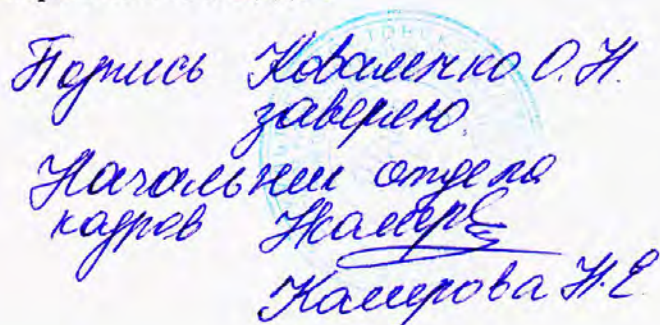 Подпись Коваленко О.Н.
заверяю
Начальник отдела
кадров
Камерова Н.Е